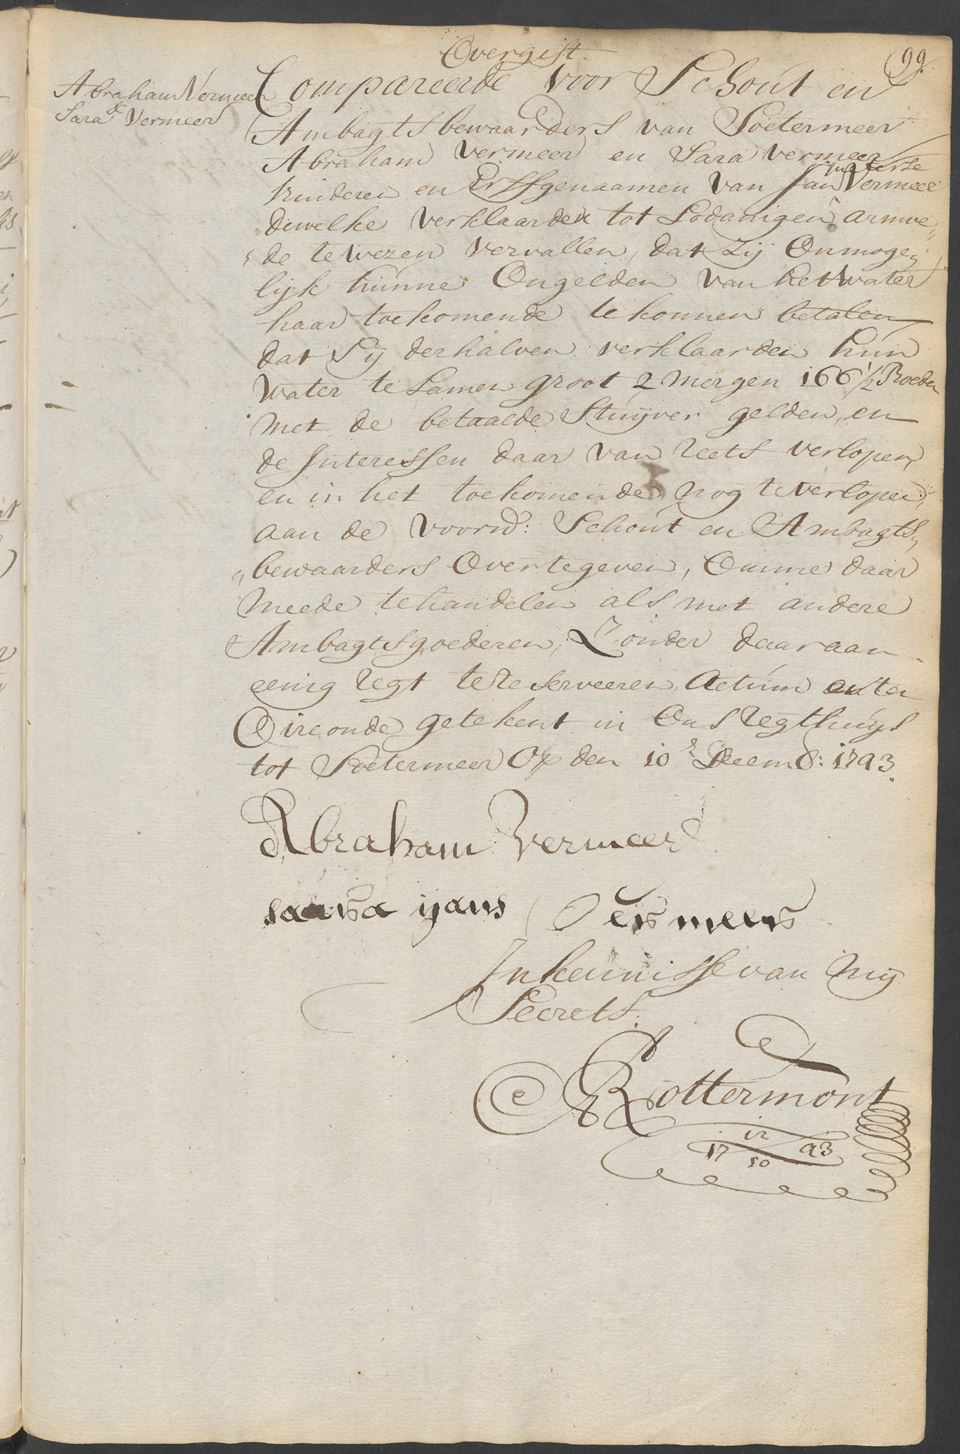 Overgift
99.
Abraham Vermeer
Sara Vermeer
Compareerde voor Schout en
Ambagtsbewaarders van Soetermeer
Abraham Vermeer en Sara Vermeer
Kinderen en Erfgenaamen van Jan Vermeer
dewelke verklaarden tot sodanigen armoe„
„de te wezen vervallen, dat zij Onmoge„
lijk hunne Ongelden van het Water
haar toekomende te konnen betalen
dat sij derhalven verklaarden hun
Water te samen groot 2 mergen 166 1/2 Roeden
met de betaalde Stuyver gelden, en
de Interessen daar van reets verlopen,
en in het toekomende nog te verlopen,
aan de voorn: Schout en Ambagts„
„bewaarders Over te geven, Omme daar
meede te handelen als met andere
Ambagtsgoederen, Zonder daar aan
eenig regt te reserveeren, Actum en ter
Oirconde getekent in Ons Regthuys
tot Soetermeer Op den 10e Decemb: 1793.
Abraham Vermeer
saara yans Vermeer
In kennisse van mij
Secrets:
Rottermont
12
17 93
10